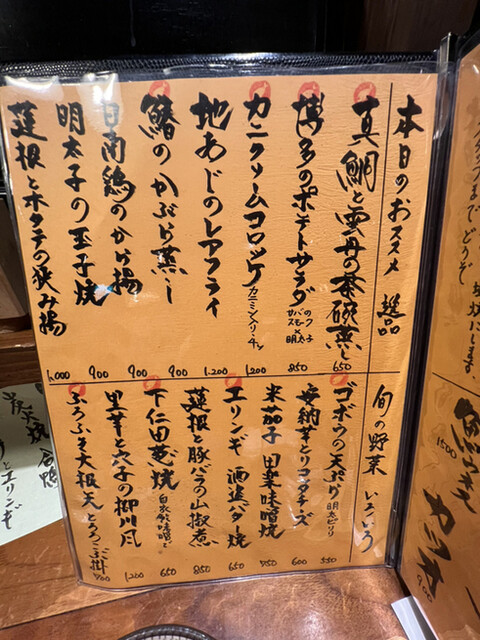 スタッフまでどうぞ
カツオ 900
本日のおススメ 逸品
真鯛と雲丹の茶碗蒸し 650
博多のポテトサラダ 850
カニクリームコロッケ 1,200
地あじのレアフライ 1,200
鰆のかぶら蒸し 900
日南鶏のから揚 900
明太子の玉子焼 900
蓮根とホタテの狭み揚 1,000
旬の野菜 いろいろ
ゴボウの天ぷら 明太ピリリ 550
安納芋とリコッタチーズ 600
米茄子 田楽味噌焼 750
エリンギ 酒盗バター焼 650
蓮根と豚バラの山椒煮 850
下仁田葱焼 650
里芋と穴子の柳川風 1,200
ふろふき大根天とろろこぶ掛 700
合鴨
とエリンギ